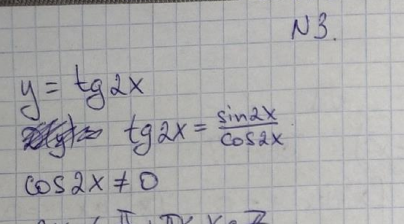 N3.
y = tg2x
tg2x = sin2x/cos2x
cos2x ≠ 0